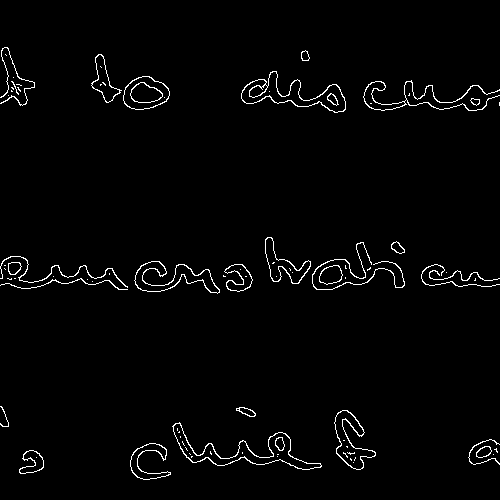 t to discus
emonstration
's chief a